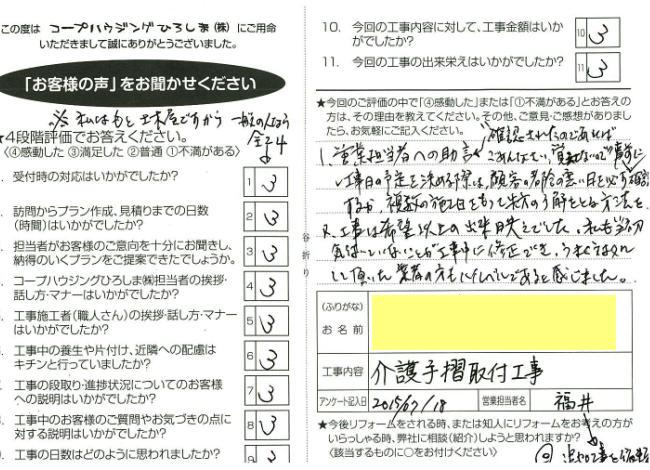 この度は コープハウジングひろしま(株) にご用命
いただきまして誠にありがとうございました。
「お客様の声」をお聞かせください
※ 私はもと 土木屋ですから
★4段階評価でお答えください。
〈④感動した ③満足した ②普通 ①不満がある〉
受付時の対応はいかがでしたか? 1 3
訪問からプラン作成、見積りまでの日数
(時間)はいかがでしたか? 2 3
担当者がお客様のご意向を十分にお聞きし、
納得のいくプランをご提案できたでしょうか。 3 3
コープハウジングひろしま㈱担当者の挨拶・
話し方・マナーはいかがでしたか? 4 3
工事施工者(職人さん)の挨拶・話し方・マナー
はいかがでしたか? 5 3
工事中の養生や片付け、近隣への配慮は
キチンと行っていましたか? 6 3
工事の段取り・進捗状況についてのお客様
への説明はいかがでしたか? 7 3
工事中のお客様のご質問やお気づきの点に
対する説明はいかがでしたか? 8 3
工事の日数はどのように思われましたか? 9
谷折り
10. 今回の工事内容に対して、工事金額はいか
がでしたか? 10 3
11. 今回の工事の出来栄えはいかがでしたか? 11 3
★今回のご評価の中で「④感動した」または「①不満がある」とお答え
の方は、その理由を教えてください。その他、ご意見・ご感想がありまし
たら、お気軽にご記入ください。
確認されたのであれば
1. 営業担当者への助言 ごめんなさい
工事日の予定を決める際は、顧客の都合の悪い日を必ず確認
するか、複数の施工日をもって
工事は希望以上の出来映えでした。私も当初
気付いていないことが工事中に修正でき、うまく
して頂いた 業者の方もハイレベルであると感じました。
(ふりがな)
お名前
工事内容 介護手摺取付工事
アンケート記入日 2015/07/18 営業担当者名 福井
★今後リフォームをされる時、または知人にリフォームをお考えの方が
いらっしゃる時、弊社に相談(紹介)しようと思われますか?
〈該当するものに○をお付けください〉